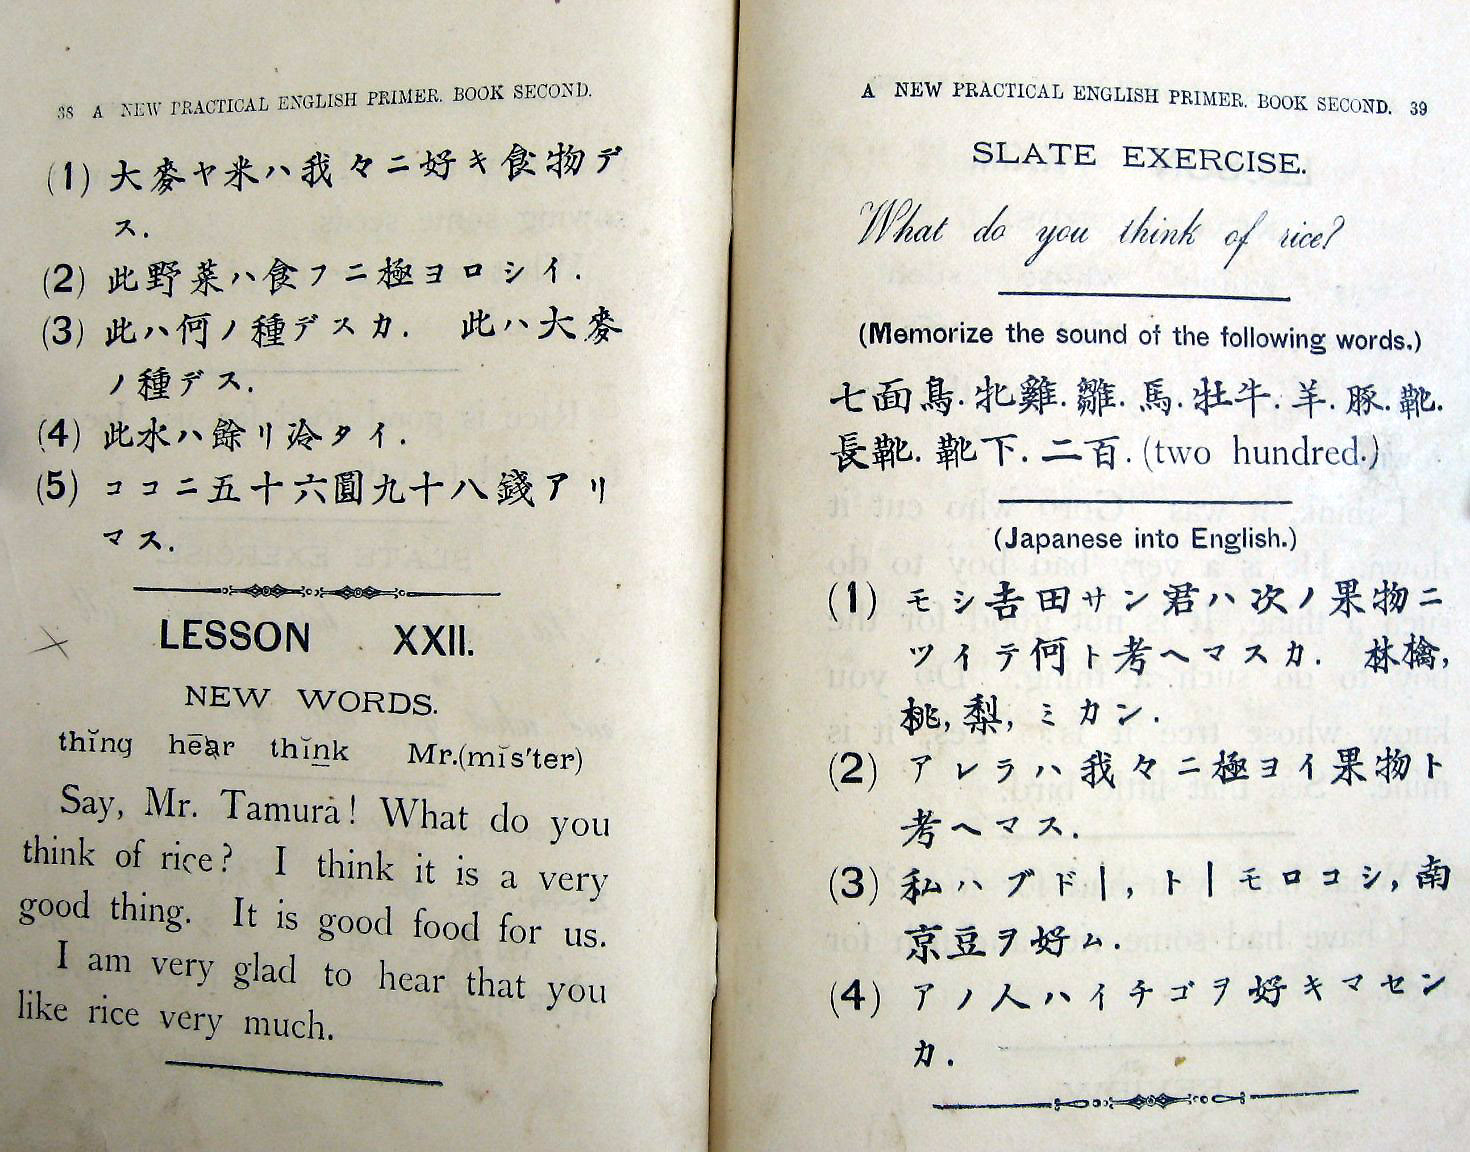 38 A NEW PRACTICAL ENGLISH PRIMER. BOOK SECOND.
(1) 大麥ヤ米ハ我々ニ好キ食物デ
ス.
(2) 此野菜ハ食フニ極ヨロシイ.
(3) 此ハ何ノ種デスカ. 此ハ大麥
ノ種デス.
(4) 此水ハ餘リ冷タイ.
(5) ココニ五十六圓九十八錢アリ
マス.
LESSON XXII.
NEW WORDS.
thĭng hēar thĭnk Mr.(mĭs'ter)
Say, Mr. Tamura! What do you
think of rice? I think it is a very
good thing. It is good food for us.
I am very glad to hear that you
like rice very much.
A NEW PRACTICAL ENGLISH PRIMER. BOOK SECOND. 39
SLATE EXERCISE.
What do you think of rice?
(Memorize the sound of the following words.)
七面鳥. 牝雞. 雛. 馬. 牡牛. 羊. 豚. 靴.
長靴. 靴下. 二百. (two hundred.)
(Japanese into English.)
(1) モシ𠮷田サン君ハ次ノ果物ニ
ツイテ何ト考ヘマスカ. 林檎,
桃, 梨, ミカン.
(2) アレラハ我々ニ極ヨイ果物ト
考ヘマス.
(3) 私ハブドー, トーモロコシ, 南
京豆ヲ好ム.
(4) アノ人ハイチゴヲ好キマセン
カ.